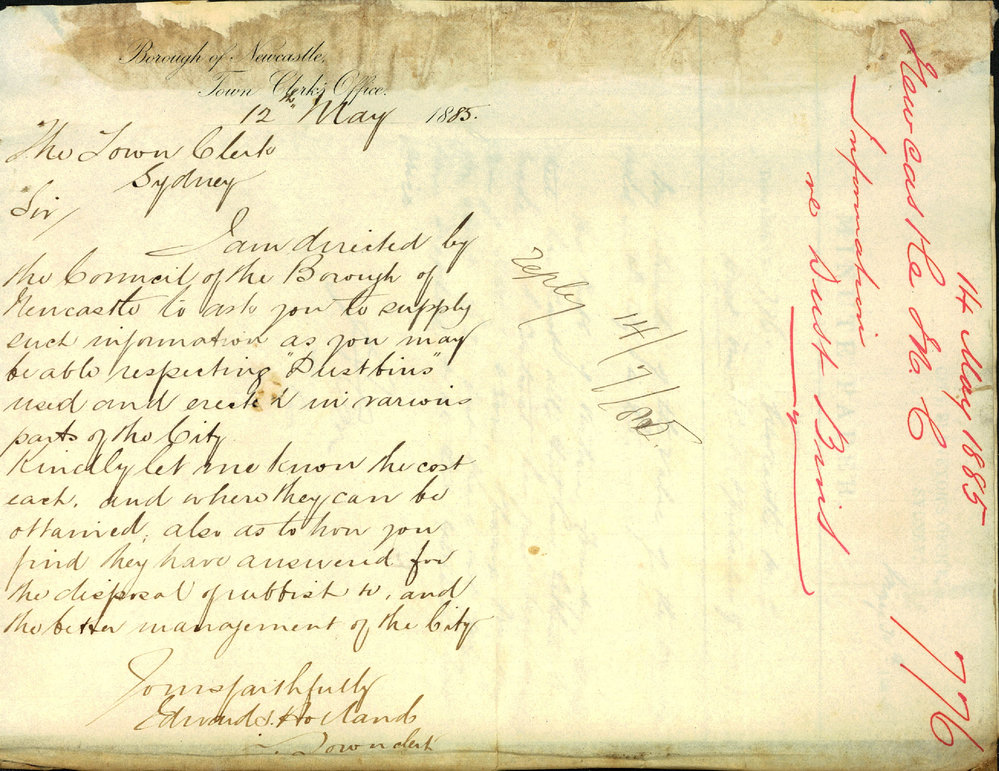 Borough of Newcastle,
Town Clerk's Office.
12th May 1885.
The Town Clerk
Sydney
Sir/
I am directed by
the Council of the Borough of
Newcastle to ask you to supply
such information as you may
be able respecting "Dustbins"
used and erected in various
parts of the City.
Kindly let me know the cost
each, and where they can be
obtained, also as to how you
find they have answered for
the disposal of rubbish &c, and
the better management of the City
Yours faithfully
Edward S. Holland
Town Clerk
reply
14/7/85.
14 May 1885
Newcastle M. C
Information
re Dust Bins
776